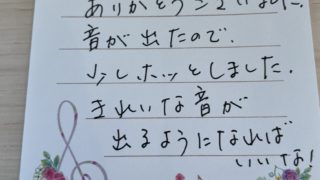 ありがとうございました.
音が出たので、
少しホッとしました.
きれいな音が
出るようになれば
いいな!